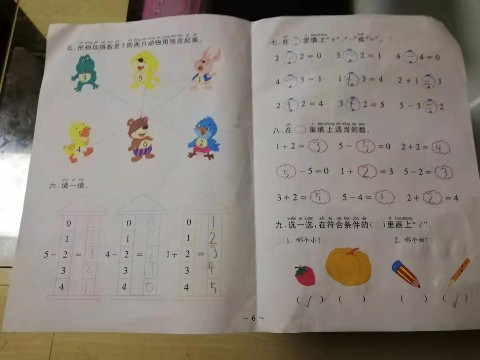 五、把相加得数是5的两只动物用线连起来。
1 5 3
4 0 2
六、填一填。
0
1
5－2＝
3
4
0
1
4－2＝
3
4
0 1
1 2
1＋2＝3
3 4
4 5
－6－
七、在○里填上“＋”“－”或“＝”。
2 2＝0 3 2＝1 4 4＝0
4 3＝1 1 4 2＋1 3
2 2＝0 3 2＝5 5－3 2
八、在 里填上适当的数。
1＋2＝3 5－5＝0 2＋2＝4
5－5＝0 1＋2＝3 5－2＝3
3＋2＝5 5－4＝1 2＋2＝4
九、选一选,在符合条件的( )里画上“√”。
1. 哪个小? 2. 哪个细?
(√) ( ) ( ) (√)